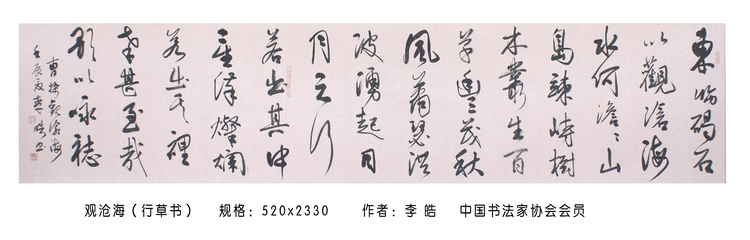 東临碣石
以觀滄海
水何澹々山
島竦峙樹
木叢生百
草豐茂秋
風蕭瑟洪
波湧起日
月之行
若出其中
星漢燦爛
若出其裡
幸甚至哉
歌以詠誌
曹操觀滄海
壬辰 春 皓书
观沧海（行草书） 规格：520x2330 作者：李 皓 中国书法家协会会员